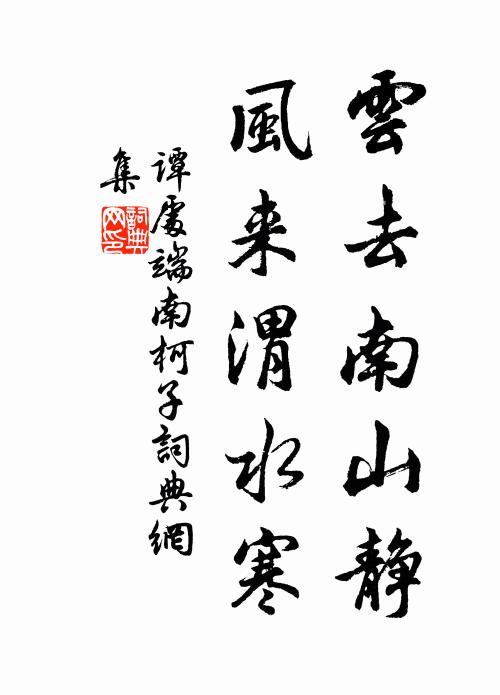 雲去南山静
風来渭水寒
譚處端南柯子詞典網
集
詞典網印